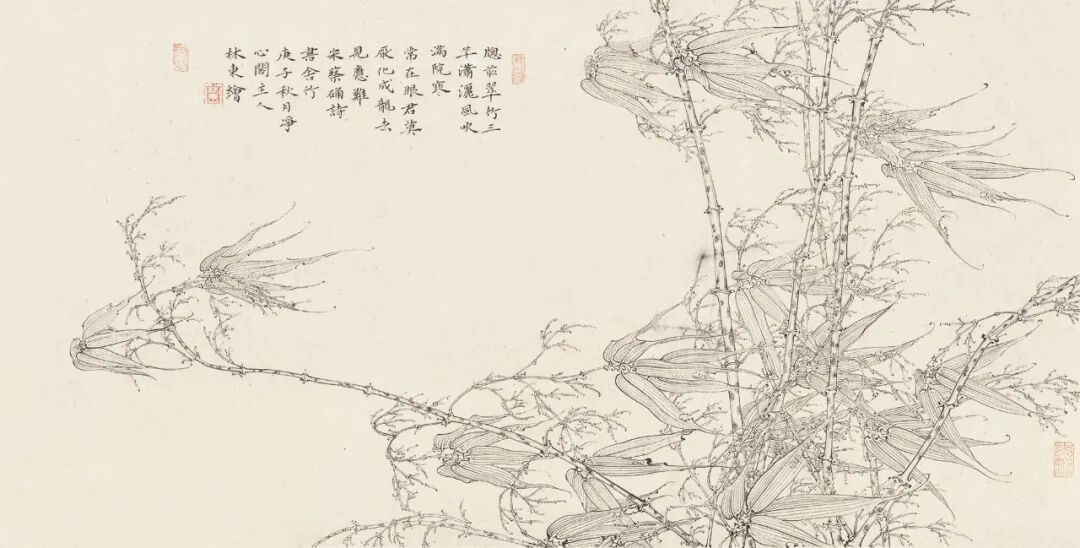 牕前翠竹三
竿瀟灑風吹
滿院寒
常在眼君莫
厭化成龍去
見應難
宋蔡確詩
書舍竹
庚子秋月凈
心閣主人
林東繪